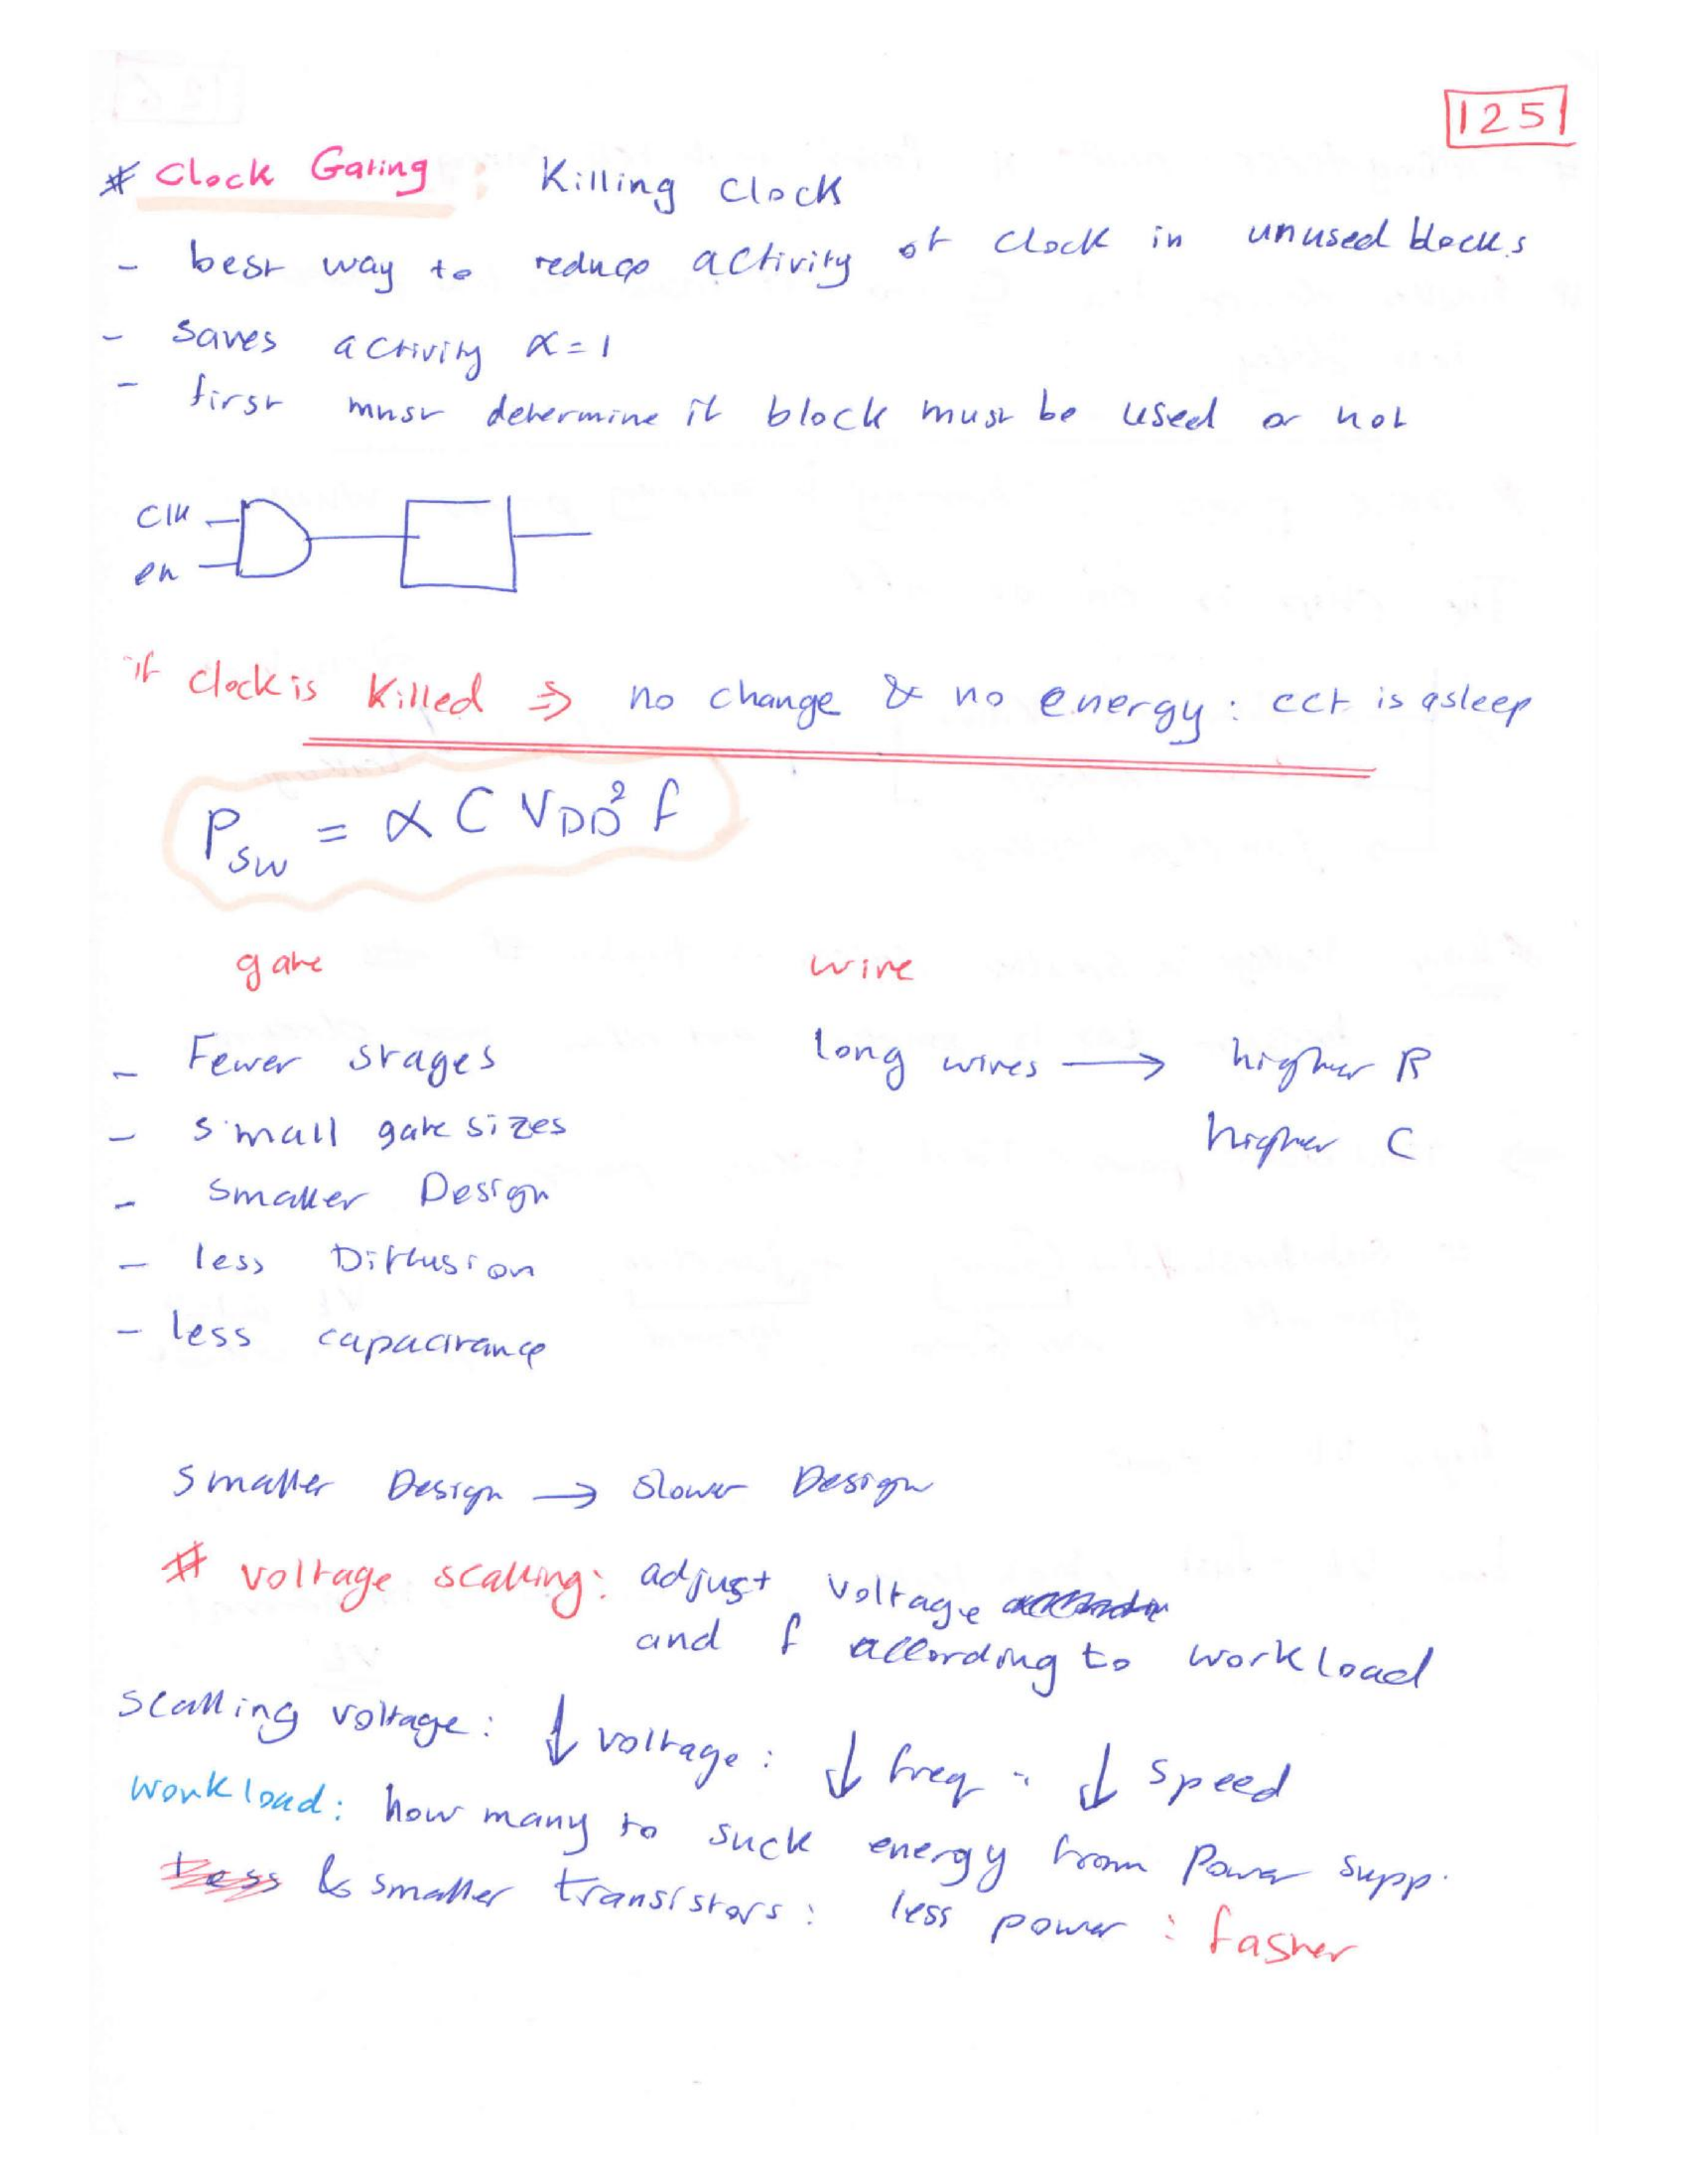 125
* Clock Gating : Killing Clock
- best way to reduce activity of clock in unused blocks
- saves activity α = 1
- first must determine if block must be used or not
Clk
en
if clock is killed ⇒ no change & no energy : cct is asleep
P_SW = α C V_DD² f
gate wire
- Fewer stages long wires → higher R
- small gate sizes higher C
- smaller Design
- less Diffusion
- less capacitance
smaller Design → slower Design
# voltage scalling: adjust voltage
and f according to workload
scalling voltage: ↓ voltage : ↓ freq : ↓ speed
workload: how many to suck energy from Power supp.
↳ smaller transistors : less power : faster